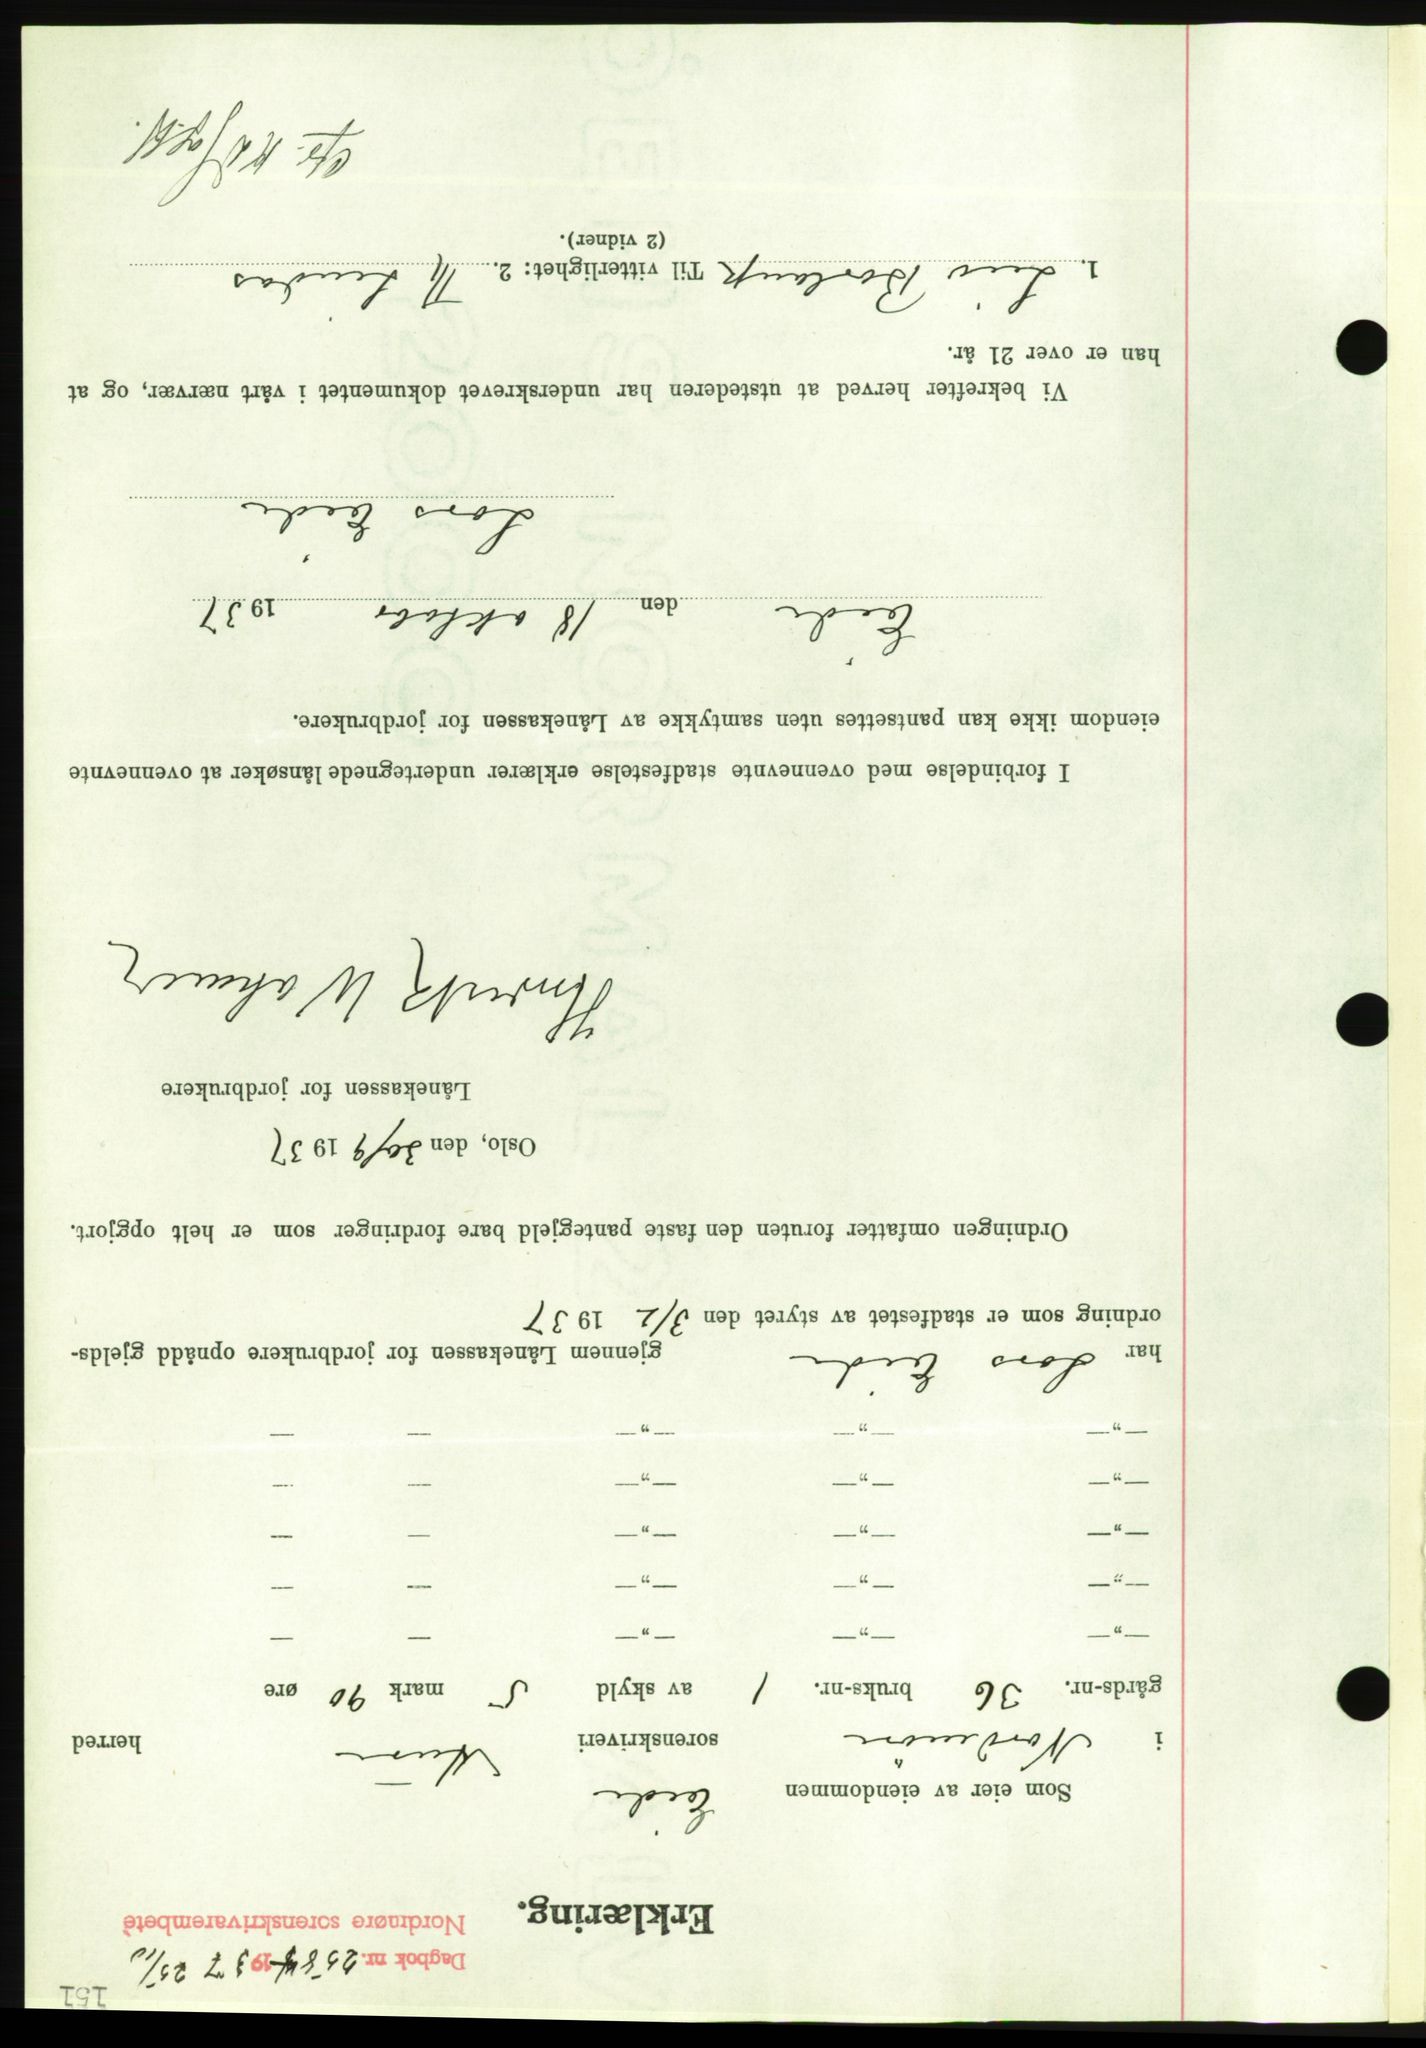 151
Dagbok nr. 2584 1937 25/10
Nordmøre sorenskrivarembete
Erklæring.
Som eier av eiendommen Eide
i Nordmøre sorenskriveri herred
gårds-nr. 36 bruks-nr. 1 av skyld 5 mark 90 øre
—"— —"— —"— — —
—"— —"— —"— — —
—"— —"— —"— — —
—"— —"— —"— — —
—"— —"— —"— — —
har Lars Eide gjennem Lånekassen for jordbrukere opnådd gjelds-
ordning som er stadfestet av styret den 3/2 1937
Ordningen omfatter foruten den faste pantegjeld bare fordringer som er helt opgjort.
Oslo, den 30/9 1937
Lånekassen for jordbrukere
I forbindelse med ovennevnte stadfestelse erklærer undertegnede lånsøker at ovennevnte
eiendom ikke kan pantsettes uten samtykke av Lånekassen for jordbrukere.
Eide den 18 oktober 1937
Lars Eide
Vi bekrefter herved at utstederen har underskrevet dokumentet i vårt nærvær, og at
han er over 21 år.
1. Til vitterlighet: 2.
(2 vidner).